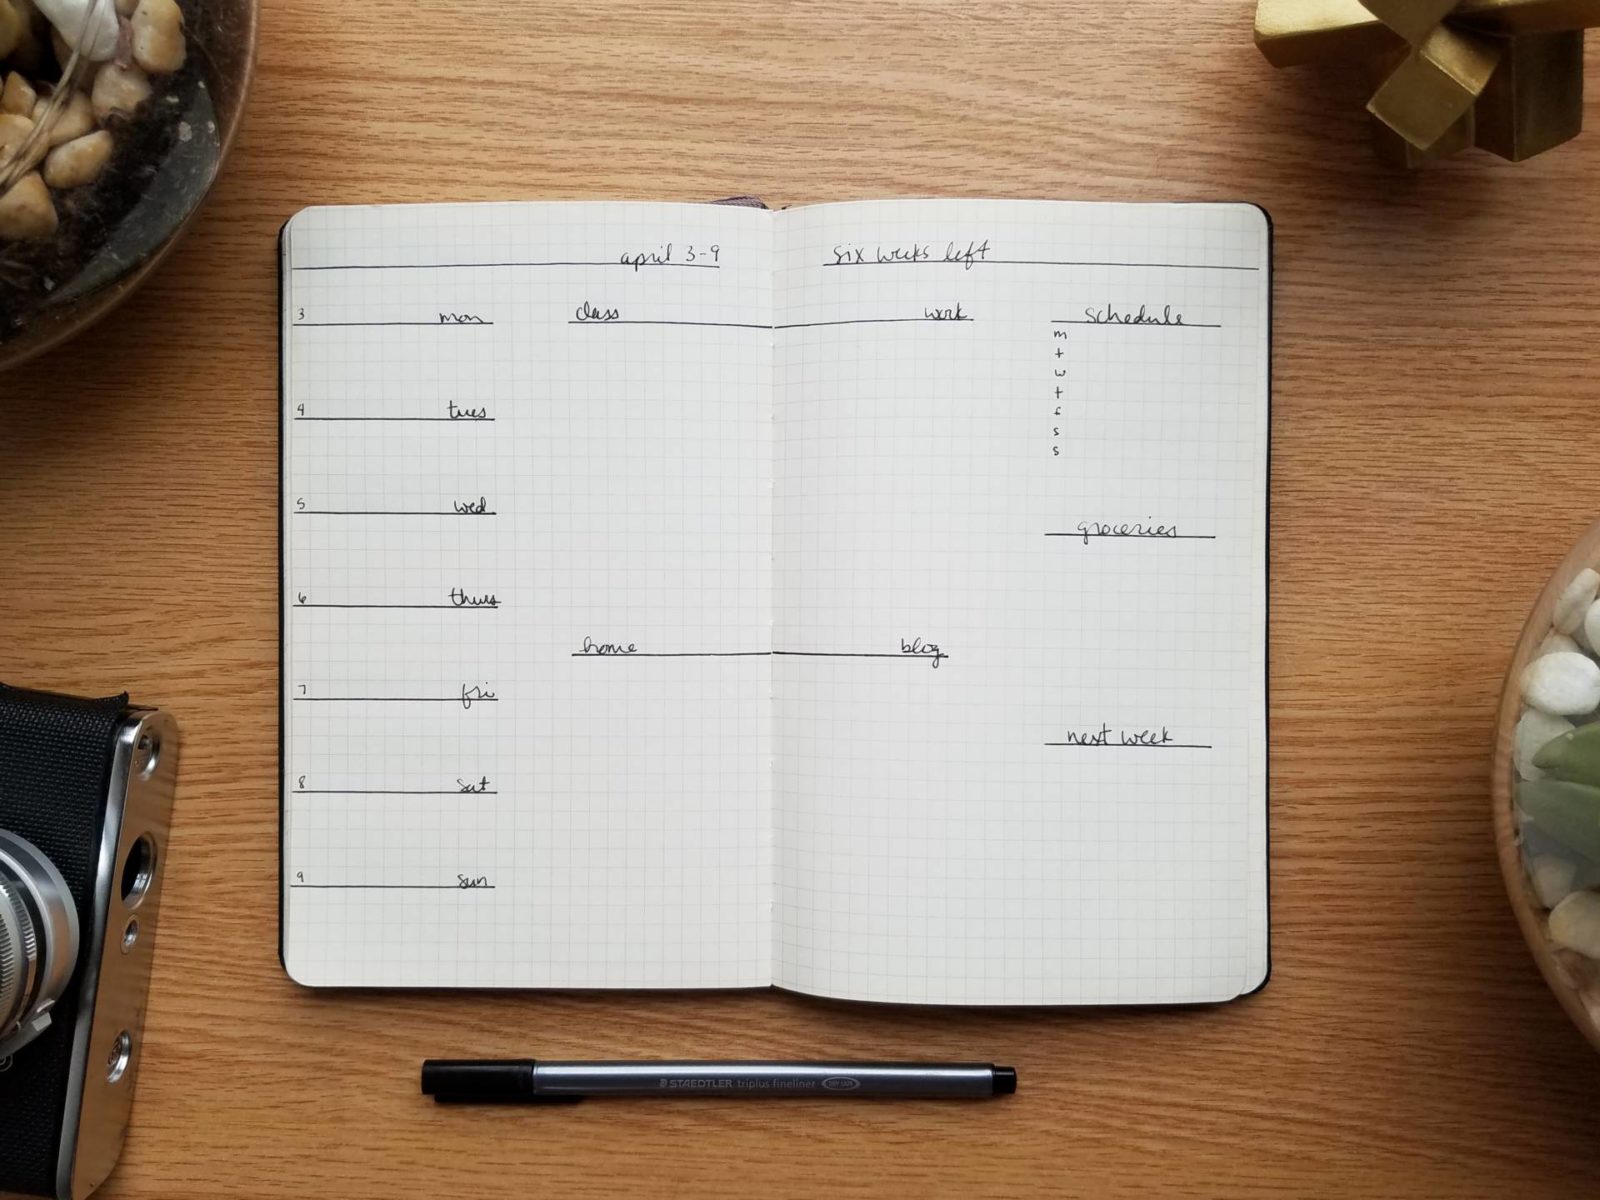 april 3-9
3 mon
4 tues
5 wed
6 thurs
7 fri
8 sat
9 sun
class
home
six weeks left
work
blog
schedule
m
t
w
t
f
s
s
groceries
next week
STAEDTLER triplus fineliner